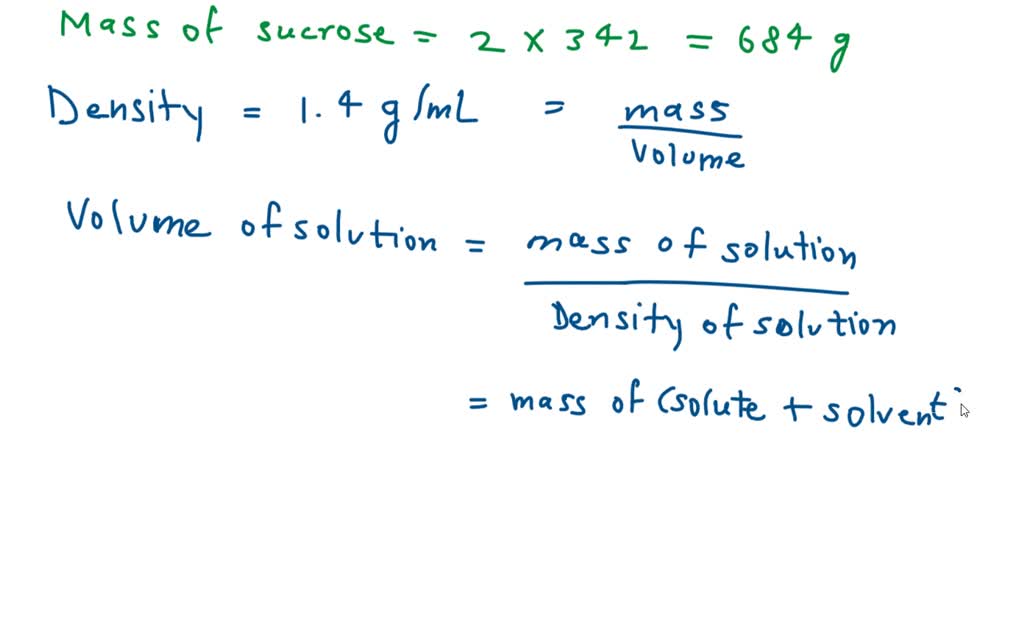 Mass of sucrose = 2 × 342 = 684 g
Density = 1.4 g/mL = mass
Volume
Volume of solution = mass of solution
Density of solution
= mass of (solute + solvent